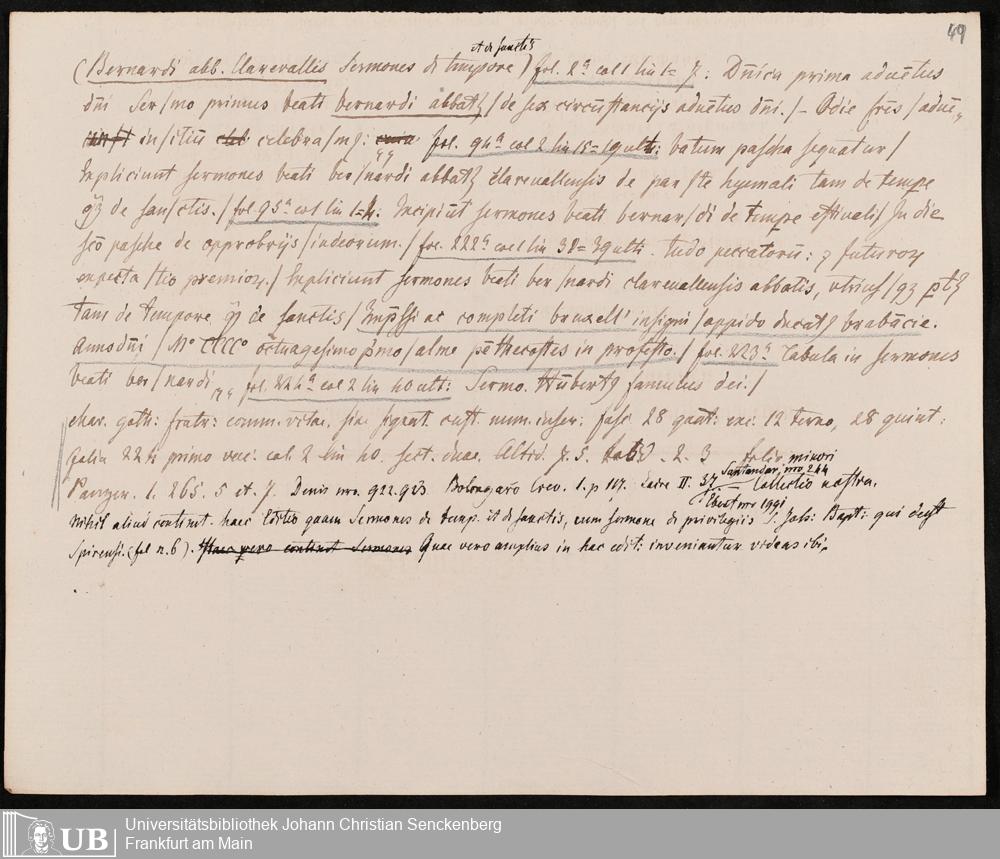 49
et de sanctis
(Bernardi abb. Clarevallis Sermones de tempore) fol. 2ª col 1 lin 1= 7: Dn̄ica prima aduētus
dn̄i Ser/mo primus beati bernardi abbatꝫ /de sex circūstancijs aduētus dn̄i. /- Odie frēs /aduē„
in/itiū celebra/mꝯ: fol. 94ª col 2 lin 15= 19 ult: batum pascha sequatur/
Expliciunt sermones beati ber/nardi abbatꝫ clareuallensis de par/te hyemali tam de tempe
qꝫ de san/ctis. / fol 95ª col 1 lin 1=4: Incipiūt sermones beati bernar/di de tempe estivali/ In die
scō pasche de opprobrijs/iudeorum./ fol. 222ª col 1 lin 38= 39 ult. tudo peccatorū: ꝫ futuroꝝ
expecta/tio premioꝝ./ Expliciunt sermones beati ber/nardi clareuallensis abbatis, utrius/qꝫ ptꝫ
tam de tempore qꝫ de sanctis/ Imp̄ssi ac completi bruxell' insigni/oppido ducatꝫ brabācie.
Anno dn̄i / Mº CCCCº octuagesimo p̄mo/alme pēthecostes in profesto./ fol. 223ª Tabula in sermones
beati ber/nardi fol. 224ª col 2 lin 40 ult: Sermo. Hūbertꝫ famulus dei./
char. goth: fratr: comm. vitae, sine signat. cust. num. inser. fasc 28 quat: exc. 12 terno, 28 quint.
folia 224 primo vac. col. 2 lin 40. sect. duae. Altid. 7. 5. Latid. 2. 3 folio minori
Santander, nro. 244
Panzer. 1. 265. 5 et. 7. Denis nro. 922. 923. Bolongaro Crev. 1. p 117. Laire II. 37 Collectio nostra.
Ebert nro 1991
Nihil aliud continet haec Editio quam Sermones de temp. et de sanctis, cum sermone de privilegiis S. Joh: Bapt: qui deest
Spirensi. (fol n. 6). Haec vero continet Sermones Quae vero amplius in hac edit: inveniantur videas ibi.
Universitätsbibliothek Johann Christian Senckenberg
UB Frankfurt am Main